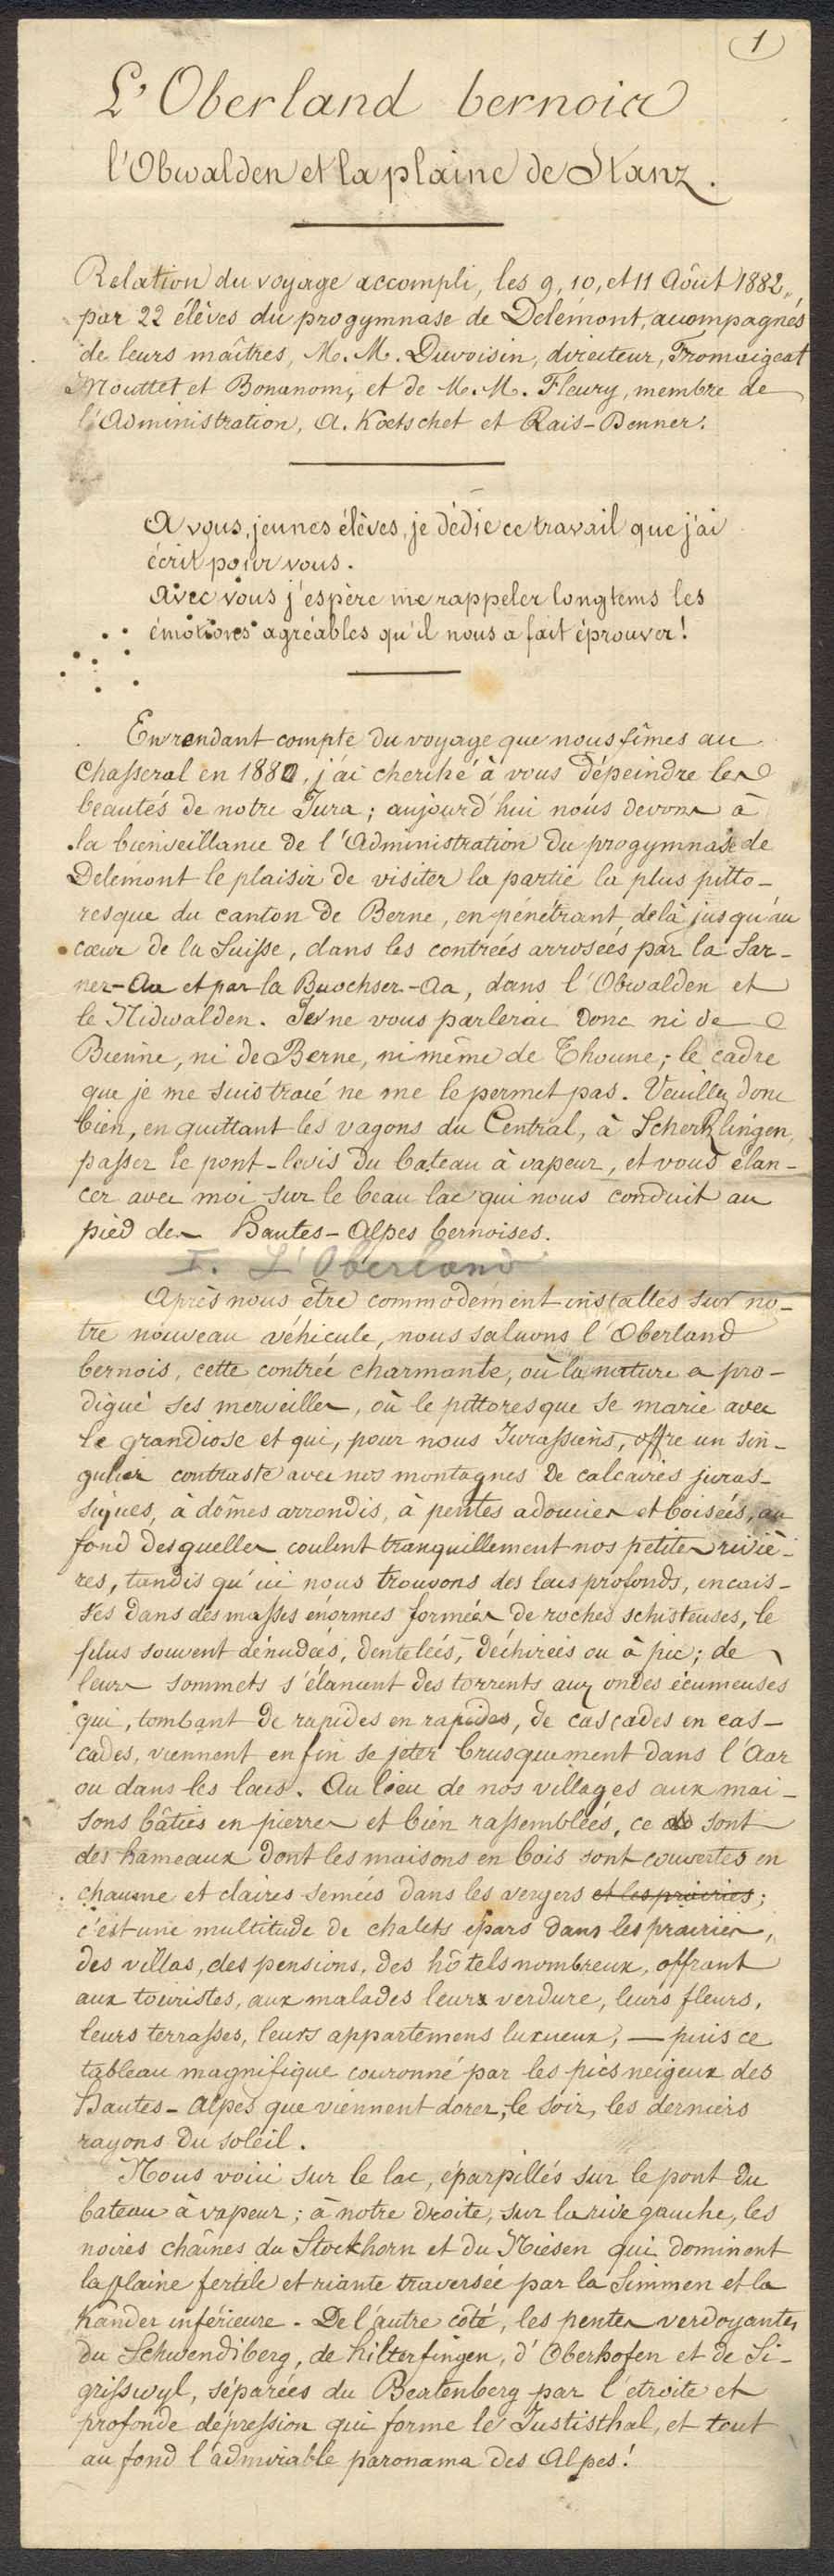 1
L'Oberland bernois
l'Obwalden et la plaine de Stanz.
Relation du voyage accompli, les 9, 10, et 11 Août 1882,
par 22 élèves du progymnase de Delémont, accompagnés
de leurs maîtres, M. M. Duvoisin, directeur, Fromaigeat
Mouttet et Bonanomi, et de M. M. Fleury, membre de
l'Administration, A. Koetschet et Rais-Benner.
A vous, jeunes élèves, je dédie ce travail que j'ai
écrit pour vous.
Avec vous j'espère me rappeler longtems les
émotions agréables qu'il nous a fait éprouver!
En rendant compte du voyage que nous fîmes au
Chasseral en 1880, j'ai cherché à vous dépeindre les
beautés de notre Jura; aujourd'hui nous devons à
la bienveillance de l'Administration du progymnase de
Delémont le plaisir de visiter la partie la plus pitto-
resque du canton de Berne, en pénétrant delà jusqu'au
cœur de la Suisse, dans les contrées arrosées par la Sar-
ner-Aa et par la Buochser-Aa, dans l'Obwalden et
le Nidwalden. Je ne vous parlerai donc ni de
Bienne, ni de Berne, ni même de Thoune; le cadre
que je me suis tracé ne me le permet pas. Veuillez donc
bien, en quittant les vagons du Central, à Scherzlingen,
passer le pont-levis du bateau à vapeur, et vous élan-
cer avec moi sur le beau lac qui nous conduit au
pied des Hautes-Alpes bernoises.
I. L'Oberland
Après nous être commodément installés sur no-
tre nouveau véhicule, nous saluons l'Oberland
bernois, cette contrée charmante, où la nature a pro-
digué ses merveilles, où le pittoresque se marie avec
le grandiose et qui, pour nous Jurassiens, offre un sin-
gulier contraste avec nos montagnes de calcaires juras-
siques, à dômes arrondis, à pentes adoucies et boisées, au
fond desquelles coulent tranquillement nos petites riviè-
res, tandis qu'ici nous trouvons des lacs profonds, encais-
sés dans des masses énormes formées de roches schisteuses, le
plus souvent dénudées, dentelées, déchirées ou à pic; de
leurs sommets s'élancent des torrents aux ondes écumeuses
qui, tombant de rapides en rapides, de cascades en cas-
cades, viennent enfin se jeter brusquement dans l'Aar
ou dans les lacs. Au lieu de nos villages aux mai-
sons bâties en pierres et bien rassemblées, ce sont
des hameaux dont les maisons en bois sont couvertes en
chaume et claires semées dans les vergers et les prairies;
c'est une multitude de chalets épars dans les prairies,
des villas, des pensions, des hôtels nombreux, offrant
aux touristes, aux malades leurs verdure, leurs fleurs,
leurs terrasses, leurs appartemens luxueux, — puis ce
tableau magnifique couronné par les pics neigeux des
Hautes-Alpes que viennent dorer, le soir, les derniers
rayons du soleil.
Nous voici sur le lac, éparpillés sur le pont du
bateau à vapeur; à notre droite, sur la rive gauche, les
noires chaînes du Stockhorn et du Niesen qui dominent
la plaine fertile et riante traversée par la Simmen et la
Kander inférieure. De l'autre côté, les pentes verdoyantes
du Schwendiberg, de Hilterfingen, d'Oberhofen et de Si-
grisswyl, séparées du Beatenberg par l'étroite et
profonde dépression qui forme le Justisthal, et tout
au fond l'admirable paronama des Alpes!